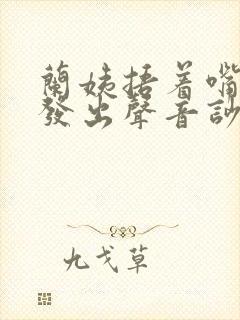 蘭姨捂着嘴
發出聲音訬
九戈草